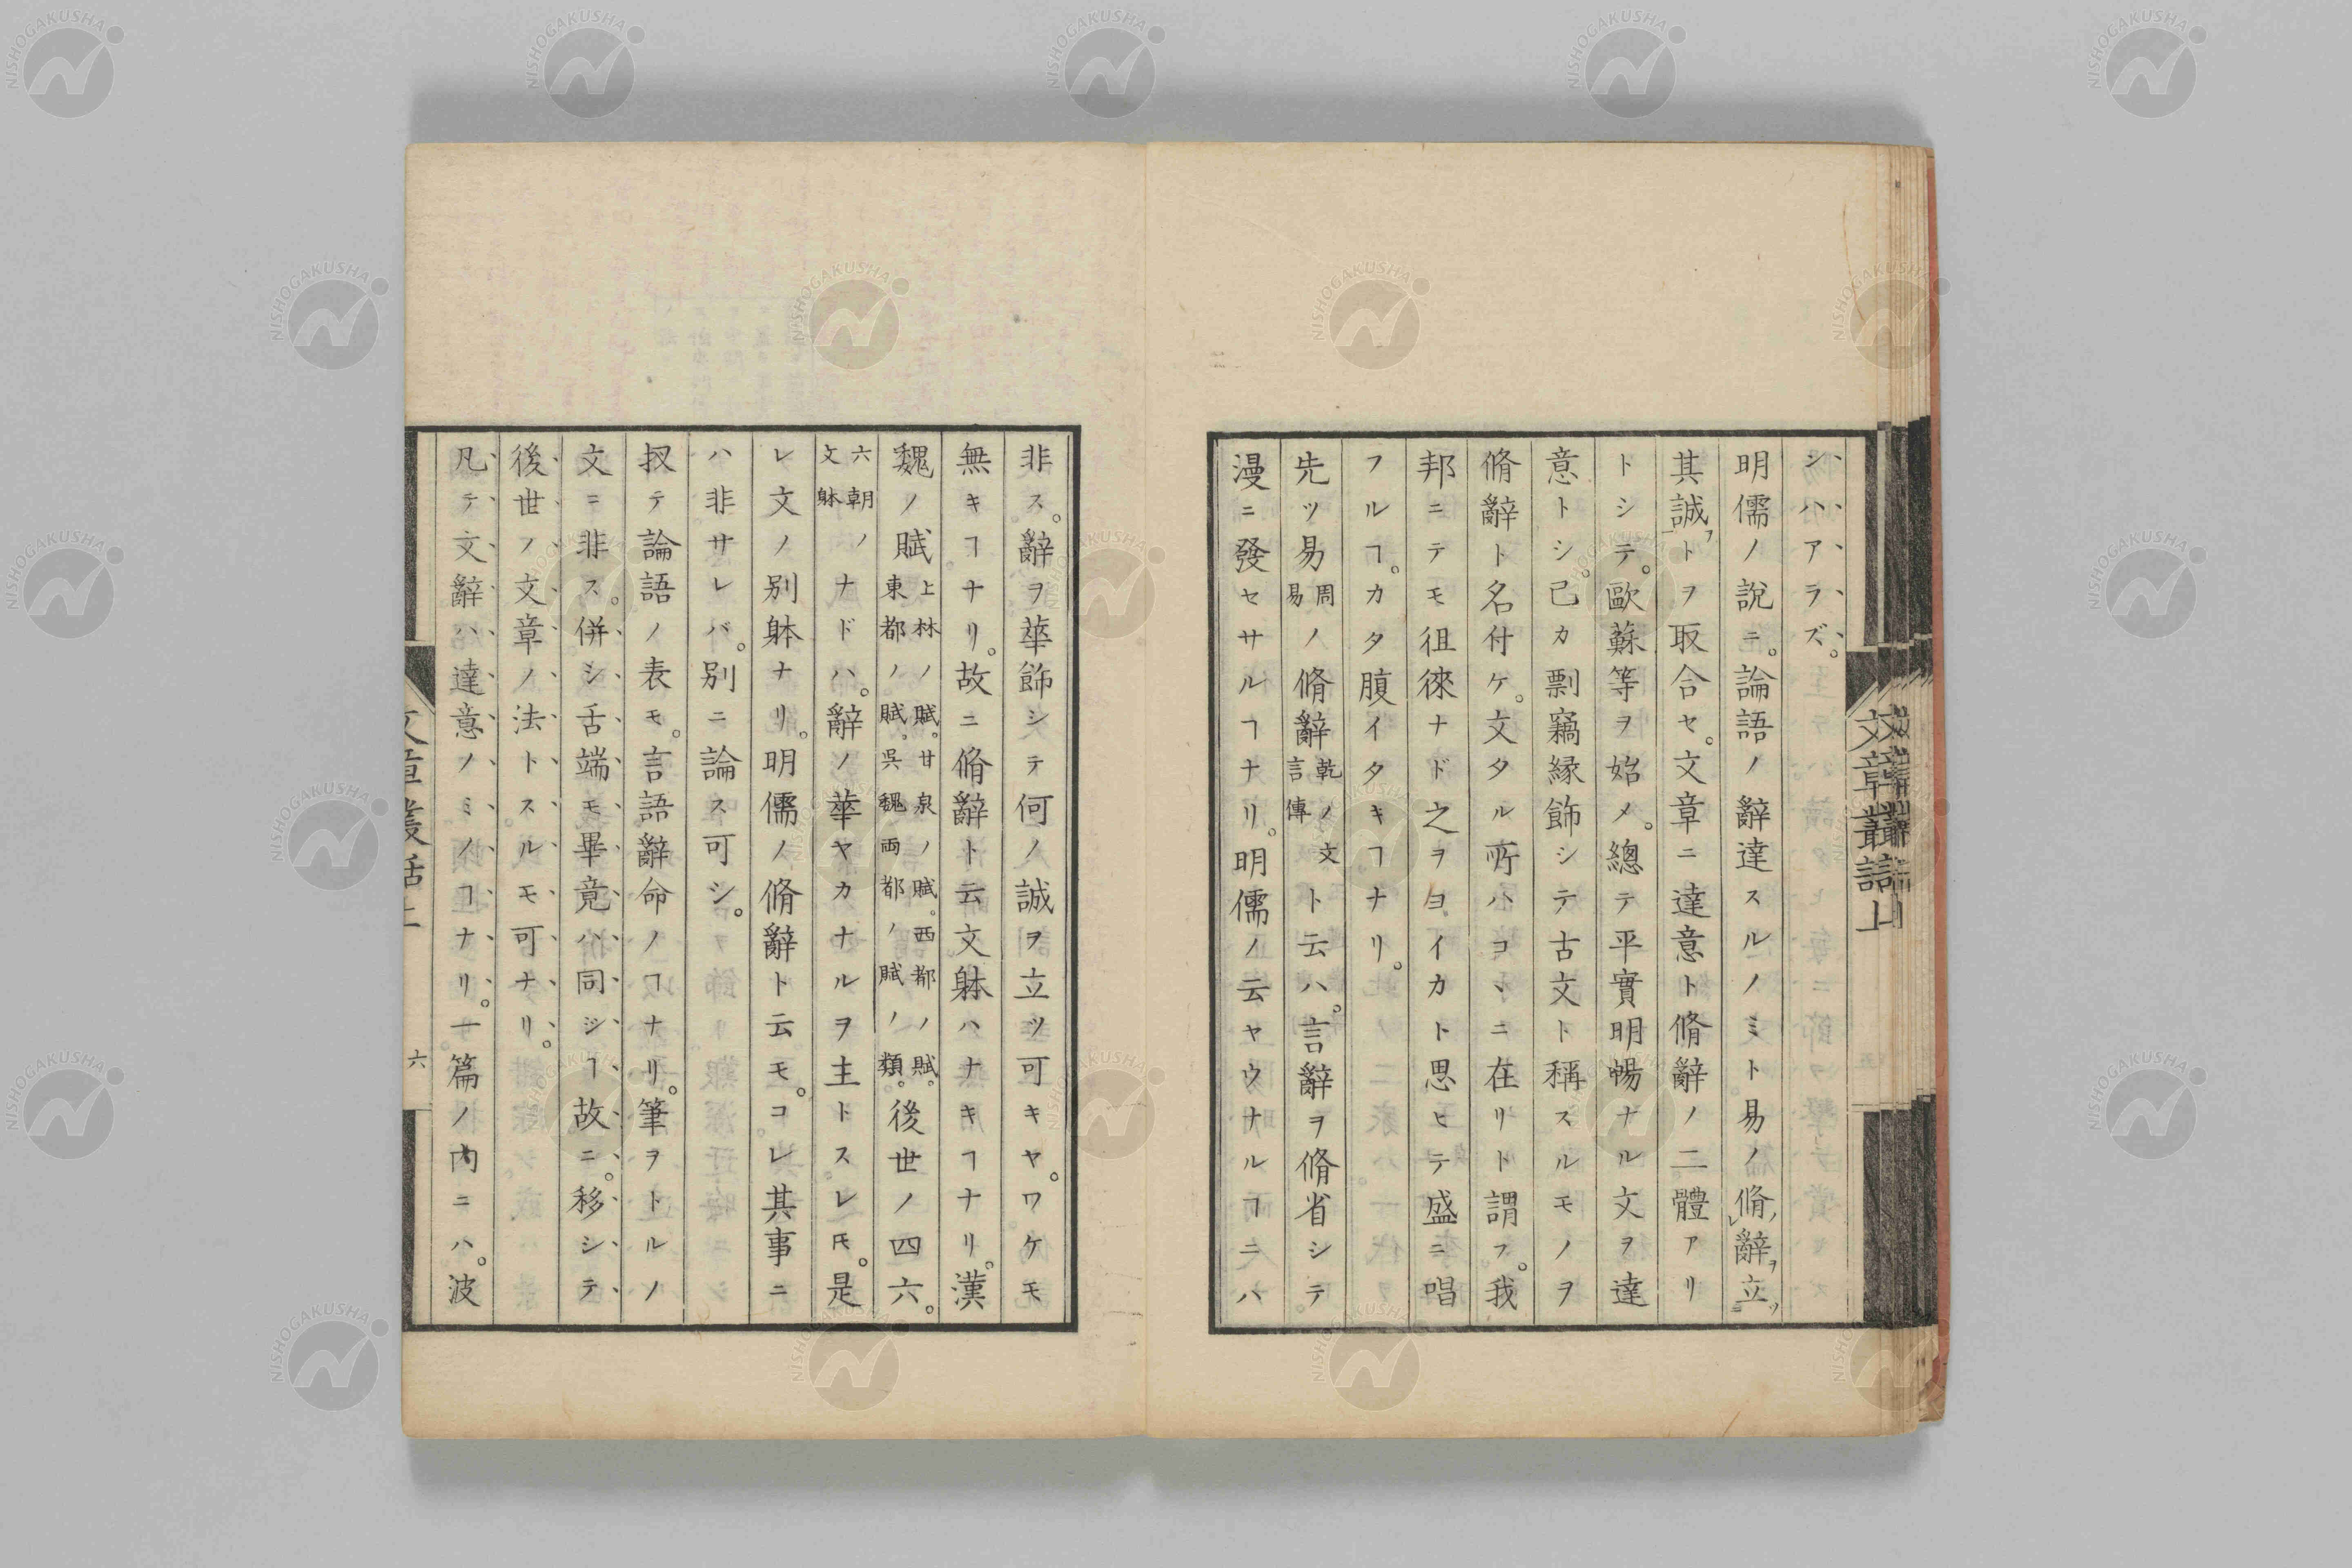 シハアラズ。
明儒ノ說ニ。論語ノ辭達スルノミト易ノ脩辭ヲ立ツ
其誠ヲトヲ取合セ。文章ニ達意ト脩辭ノ二體アリ
トシテ。歐蘇等ヲ始メ。總テ平實明暢ナル文ヲ達
意トシ。己カ剽竊緣飾シテ古文ト稱スルモノヲ
脩辭ト名付ケ。文タル所ハコヽニ在リト謂フ。我
邦ニテモ徂徠ナド之ヲヨイカト思ヒテ盛ニ唱
フルヿ。カタ腹イタキヿナリ。
先ツ易周易ノ脩辭乾ノ文言傳ト云ハ。言辭ヲ脩省シテ
漫ニ發セサルヿナリ。明儒ノ云ヤウナルヿニハ
文章叢話上
非ス。辭ヲ華飾シテ何ノ誠ヲ立ツ可キヤ。ワケモ
無キヿナリ。故ニ脩辭ト云文躰ハナキヿナリ。漢
魏ノ賦上林ノ賦。甘泉ノ賦。西都ノ賦。東都ノ賦。呉魏両都ノ賦ノ類。後世ノ四六。
六朝文躰ノナドハ。辭ノ華ヤカナルヲ主トスレ𪜈。是
レ文ノ別躰ナリ。明儒ノ脩辭ト云モ。コレ其事ニ
ハ非サレバ。別ニ論ス可シ。
扠テ論語ノ表モ。言語辭命ノヿナリ。筆ヲトルノ
文ニ非ス。併シ舌端モ畢竟ハ同シヿ故ニ。移シテ
後世ノ文章ノ法トスルモ可ナリ。
凡テ文辭ハ達意ノミノヿナリ。一篇ノ內ニハ。波
文章叢話上
六